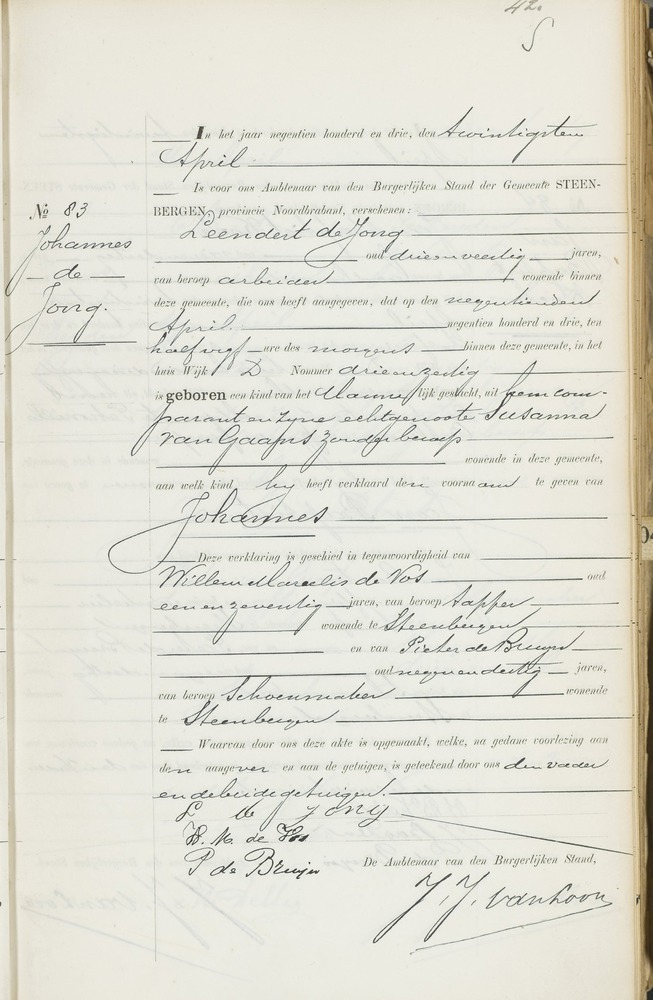 42
S
In het jaar negentien honderd en drie, den twintigsten
April
Is voor ons Ambtenaar van den Burgerlijken Stand der Gemeente STEEN-
№ 83
BERGEN, provincie Noordbrabant, verschenen:
Johannes
de
Jong.
Leendert de Jong
oud drieenveertig jaren,
van beroep arbeider wonende binnen
deze gemeente, die ons heeft aangegeven, dat op den negentienden
April negentien honderd en drie, ten
half vijf ure des morgens binnen deze gemeente, in het
huis Wijk D Nommer drieenzestig
is geboren een kind van het Mannelijk geslacht, uit hem com-
parant en zijne echtgenoote Susanna
van Gaans zonder beroep
wonende in deze gemeente,
aan welk kind hij heeft verklaard den voornaam te geven van
Johannes
Deze verklaring is geschied in tegenwoordigheid van
Willem Marcelis de Vos oud
eenenzeventig jaren, van beroep tapper
wonende te Steenbergen
en van Pieter de Bruijn
oud negenendertig jaren,
van beroep Schoenmaker wonende
te Steenbergen
Waarvan door ons deze akte is opgemaakt, welke, na gedane voorlezing aan
den aangever en aan de getuigen, is geteekend door ons den vader
en de beide getuigen.
L de jong
W. M. de Vos
P de Bruijn
De Ambtenaar van den Burgerlijken Stand,
J. J. van Loon